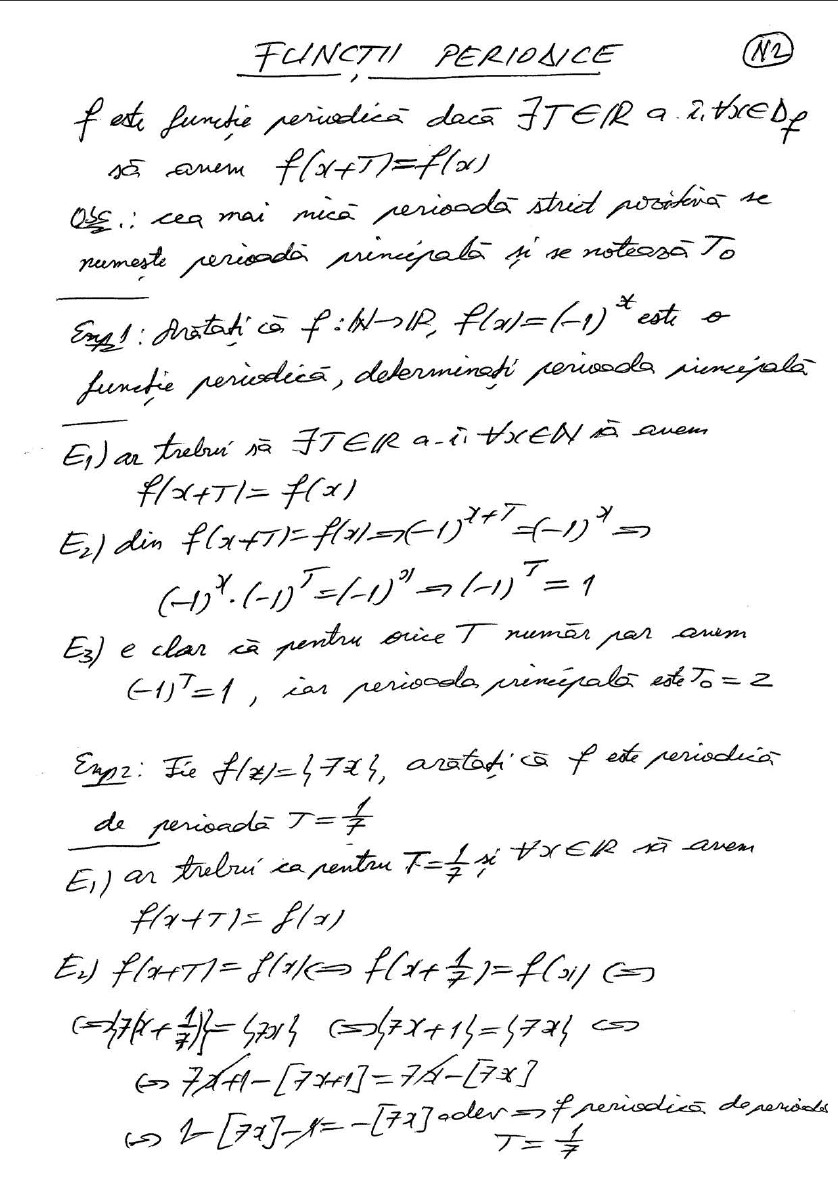 FUNCȚII PERIODICE N2
f este funcție periodică dacă ∃T∈ℝ a.î. ∀x∈D_f
să avem f(x+T)=f(x)
Obs.: cea mai mică perioadă strict pozitivă se
numește perioadă principală și se notează T₀
Exp1: Arătați că f:ℕ→ℝ, f(x)=(-1)^x este o
funcție periodică, determinați perioada principală
E₁) ar trebui să ∃T∈ℝ a.î. ∀x∈ℕ să avem
f(x+T)=f(x)
E₂) din f(x+T)=f(x)⇒(-1)^{x+T}=(-1)^x⇒
(-1)^x·(-1)^T=(-1)^x⇒(-1)^T=1
E₃) e clar că pentru orice T număr par avem
(-1)^T=1, iar perioada principală este T₀=2
Exp2: Fie f(x)={7x}, arătați că f este periodică
de perioadă T=1/7
E₁) ar trebui ca pentru T=1/7 și ∀x∈ℝ să avem
f(x+T)=f(x)
E₂) f(x+T)=f(x)⇔f(x+1/7)=f(x)⇔
⇔{7(x+1/7)}={7x} ⇔{7x+1}={7x} ⇔
⇔ 7x+1-[7x+1]=7x-[7x]
⇔ 1-[7x]-1=-[7x] adev ⇒ f periodică de perioadă
T=1/7